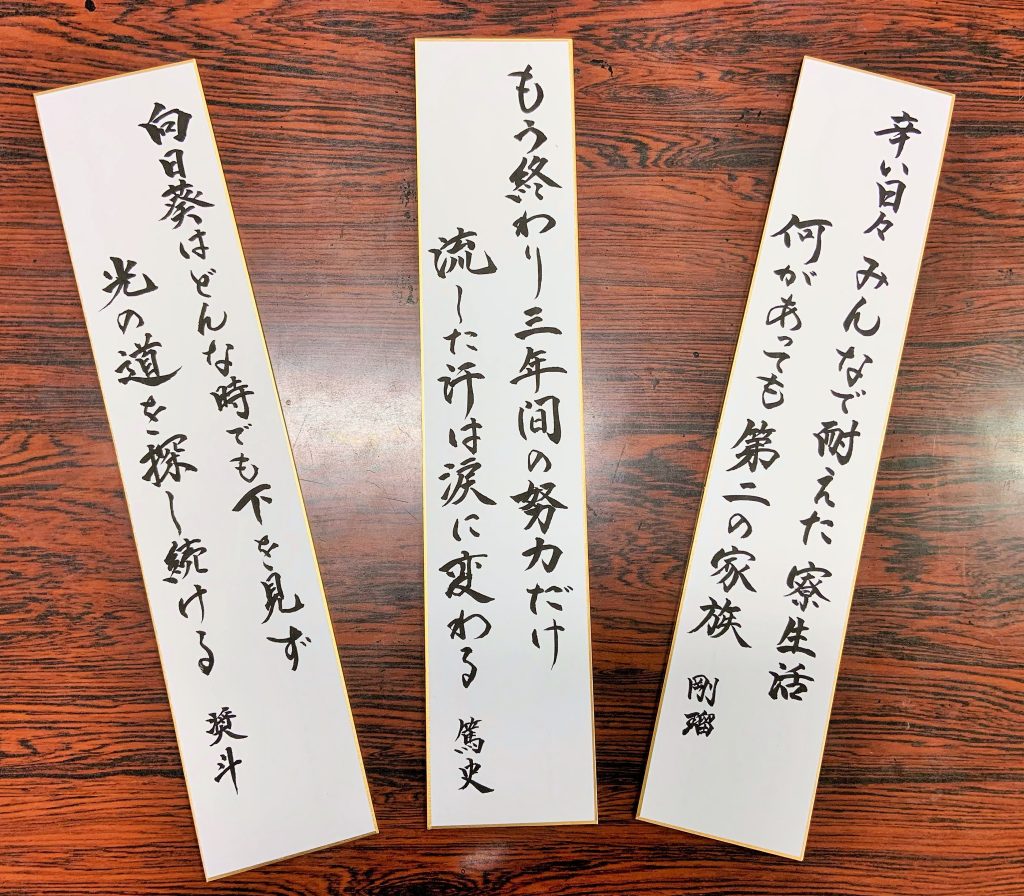 辛い日々みんなで耐えた寮生活
何があっても第二の家族
剛瑠
もう終わり三年間の努力だけ
流した汗は涙に変わる
篤史
向日葵はどんな時でも下を見ず
光の道を探し続ける
奨斗